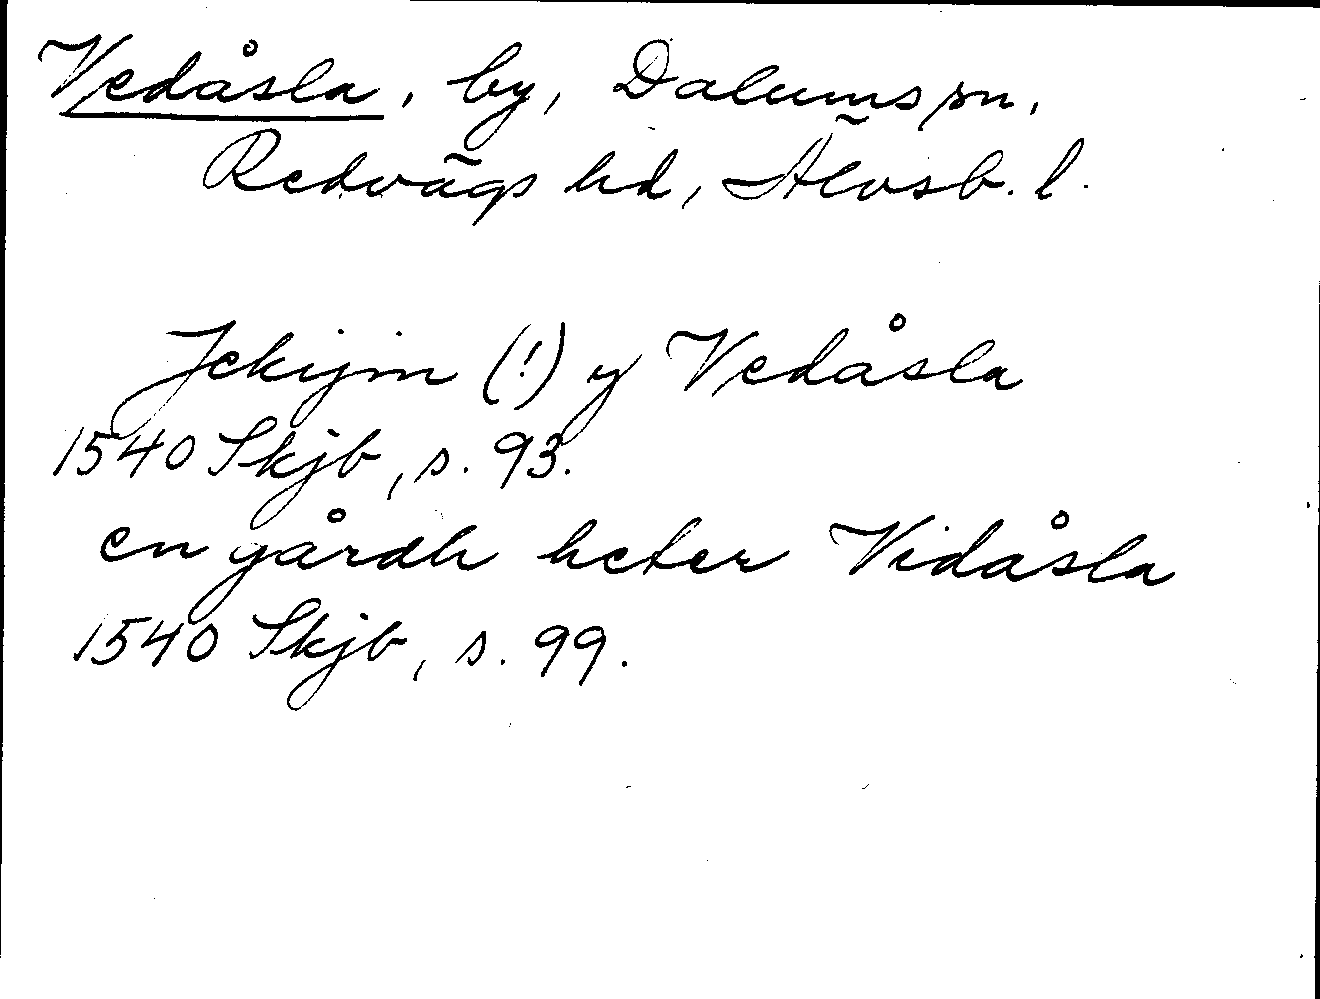 Vedåsla, by, Dalums sn,
Redvägs hd, Älvsb. l.
Jekijm (!) y Vedåsla
1540 Skjb, s. 93.
en gårdh heter Vidåsla
1540 Skjb, s. 99.